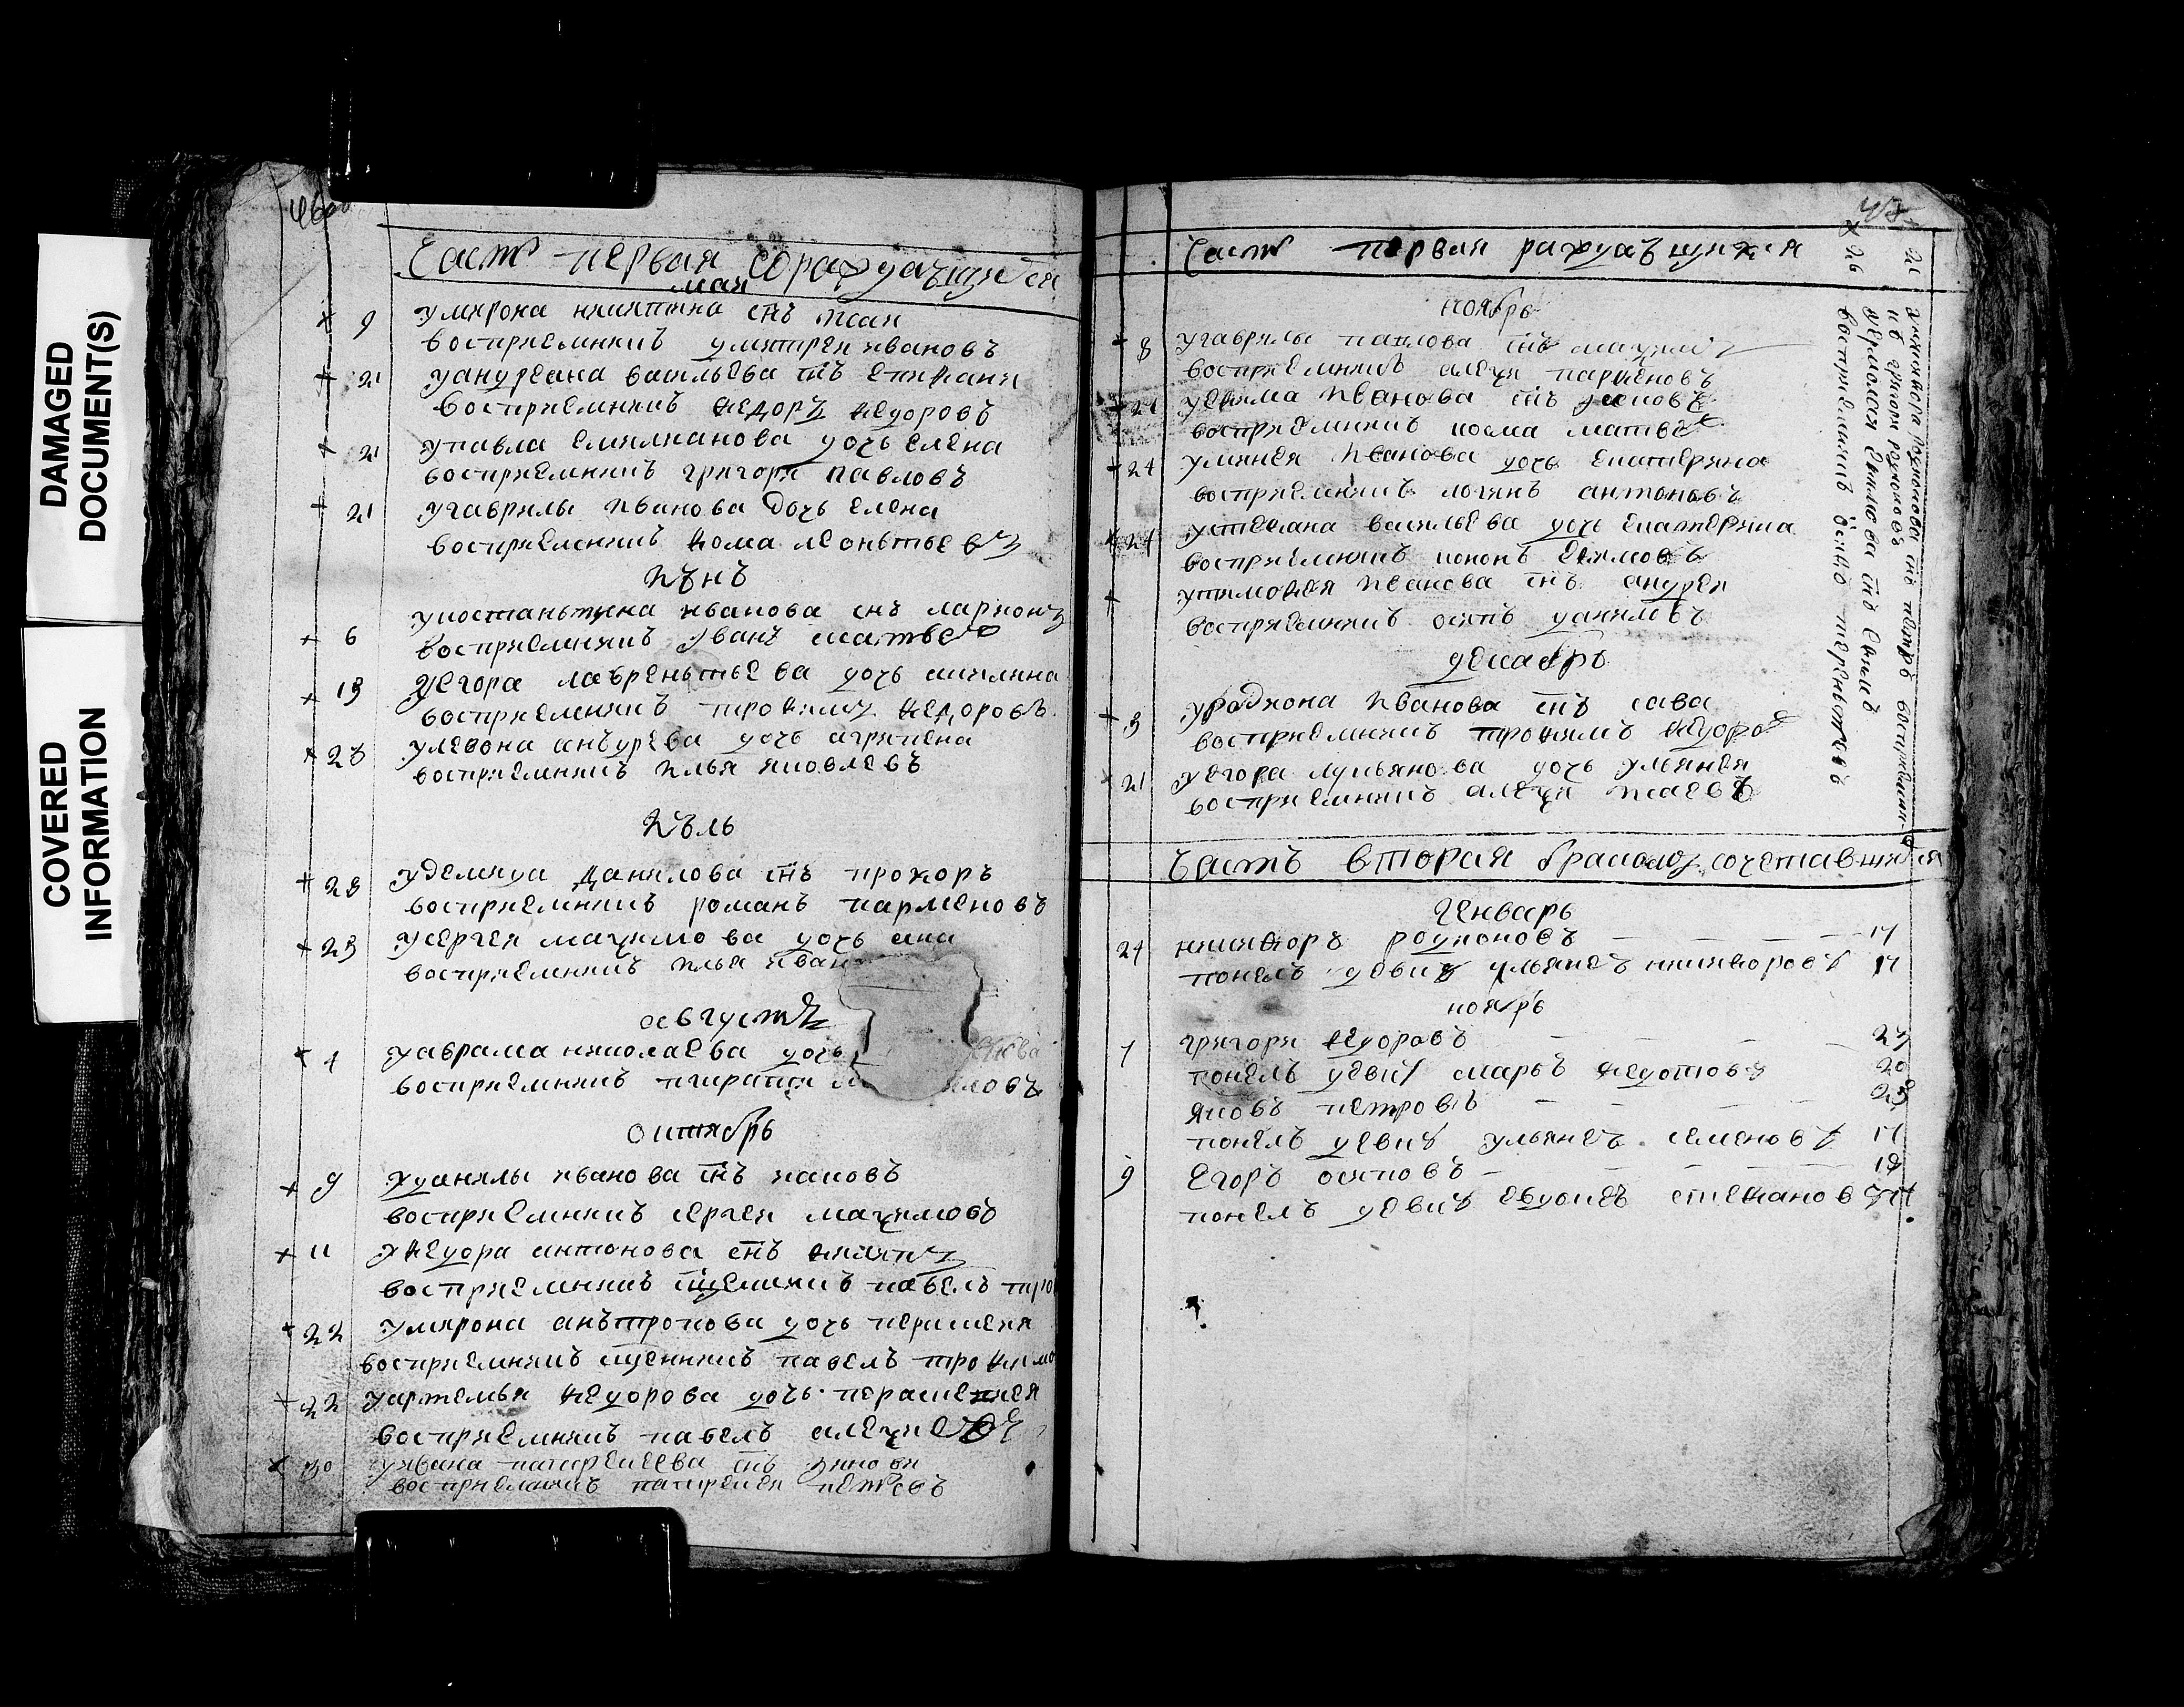 DAMAGED
DOCUMENT(S)
COVERED
INFORMATION
Часть первая о раждающихся
мая
+ 9 у мирона никитина снъ исаи
восприемникъ дмитреи ивановъ
+ 21 у андреана васильева снъ епифани
восприемникъ федоръ федоровъ
+ 21 у павла емилианова дочь елена
восприемникъ григори павловъ
+ 21 у гаврилы иванова дочь елена
восприемникъ фома леонътьевъ
июнь
у костаньтина иванова снъ ларионъ
+ 6 восприемникъ иванъ матвеевъ
+ 13 у егора лавреньтьева дочь акилина
восприемникъ трофимъ федоровъ
+ 23 у левона анъдрева дочь агрипена
восприемникъ илья яковлевъ
июль
+ 28 у демида данилова снъ прохоръ
восприемникъ романъ парменовъ
+ 23 у сергея махимова дочь ана
восприемникъ илья иван
августъ
+ 1 у аврама николаева дочь
восприемникъ
октябрь
+ 9 у данилы иванова снъ иаковъ
восприемникъ сергеи махимовъ
+ 11 у федора антонова снъ филипъ
восприемникъ сщеникъ павелъ тро
+ 22 у мирона анътропова дочь
восприемникъ сщенникъ павелъ трофимо
+ 22 у артемья федорова дочь
восприемникъ павелъ алехиевъ
+ 30 у ивана патрекеева снъ зинови
восприемникъ патрекеи петровъ
Часть первая раждающихся
ноябрь
+ 8 у гаврилы павлова снъ михаилъ
восприемникъ алехи парменовъ
+ 21 у ефима иванова снъ иаковъ
восприемникъ косма матвеевъ
+ 24 у минея иванова дочь екатерина
восприемникъ логинъ антоновъ
+ 24 у степана васильева дочь екатерина
восприемникъ кононъ ефимовъ
+ у тимофея иванова снъ андреи
восприемникъ осипъ даниловъ
декабрь
+ 3 у родиона иванова снъ сава
восприемникъ трофимъ федоровъ
+ 21 у егора лукьянова дочь ульянея
восприемникъ алехи исаевъ
21 у никифора родионова снъ петръ восприемникъ
григори родионовъ
+ 26 у ермолая ефимова снъ ефимъ
восприемникъ осипъ тереньтьевъ
Часть вторая бракомъ сочетавшихся
генварь
24 никифоръ родионовъ — — — 17
понелъ девицу ульянею никифорову 17
ноябрь
7 григори федоровъ — — 23
понелъ девицу марью федотову 20
яковъ петровъ — — — 23
понелъ девицу ульянею семенову 17
9 Егоръ осиповъ — — — 18
понелъ девицу евдокею степанову